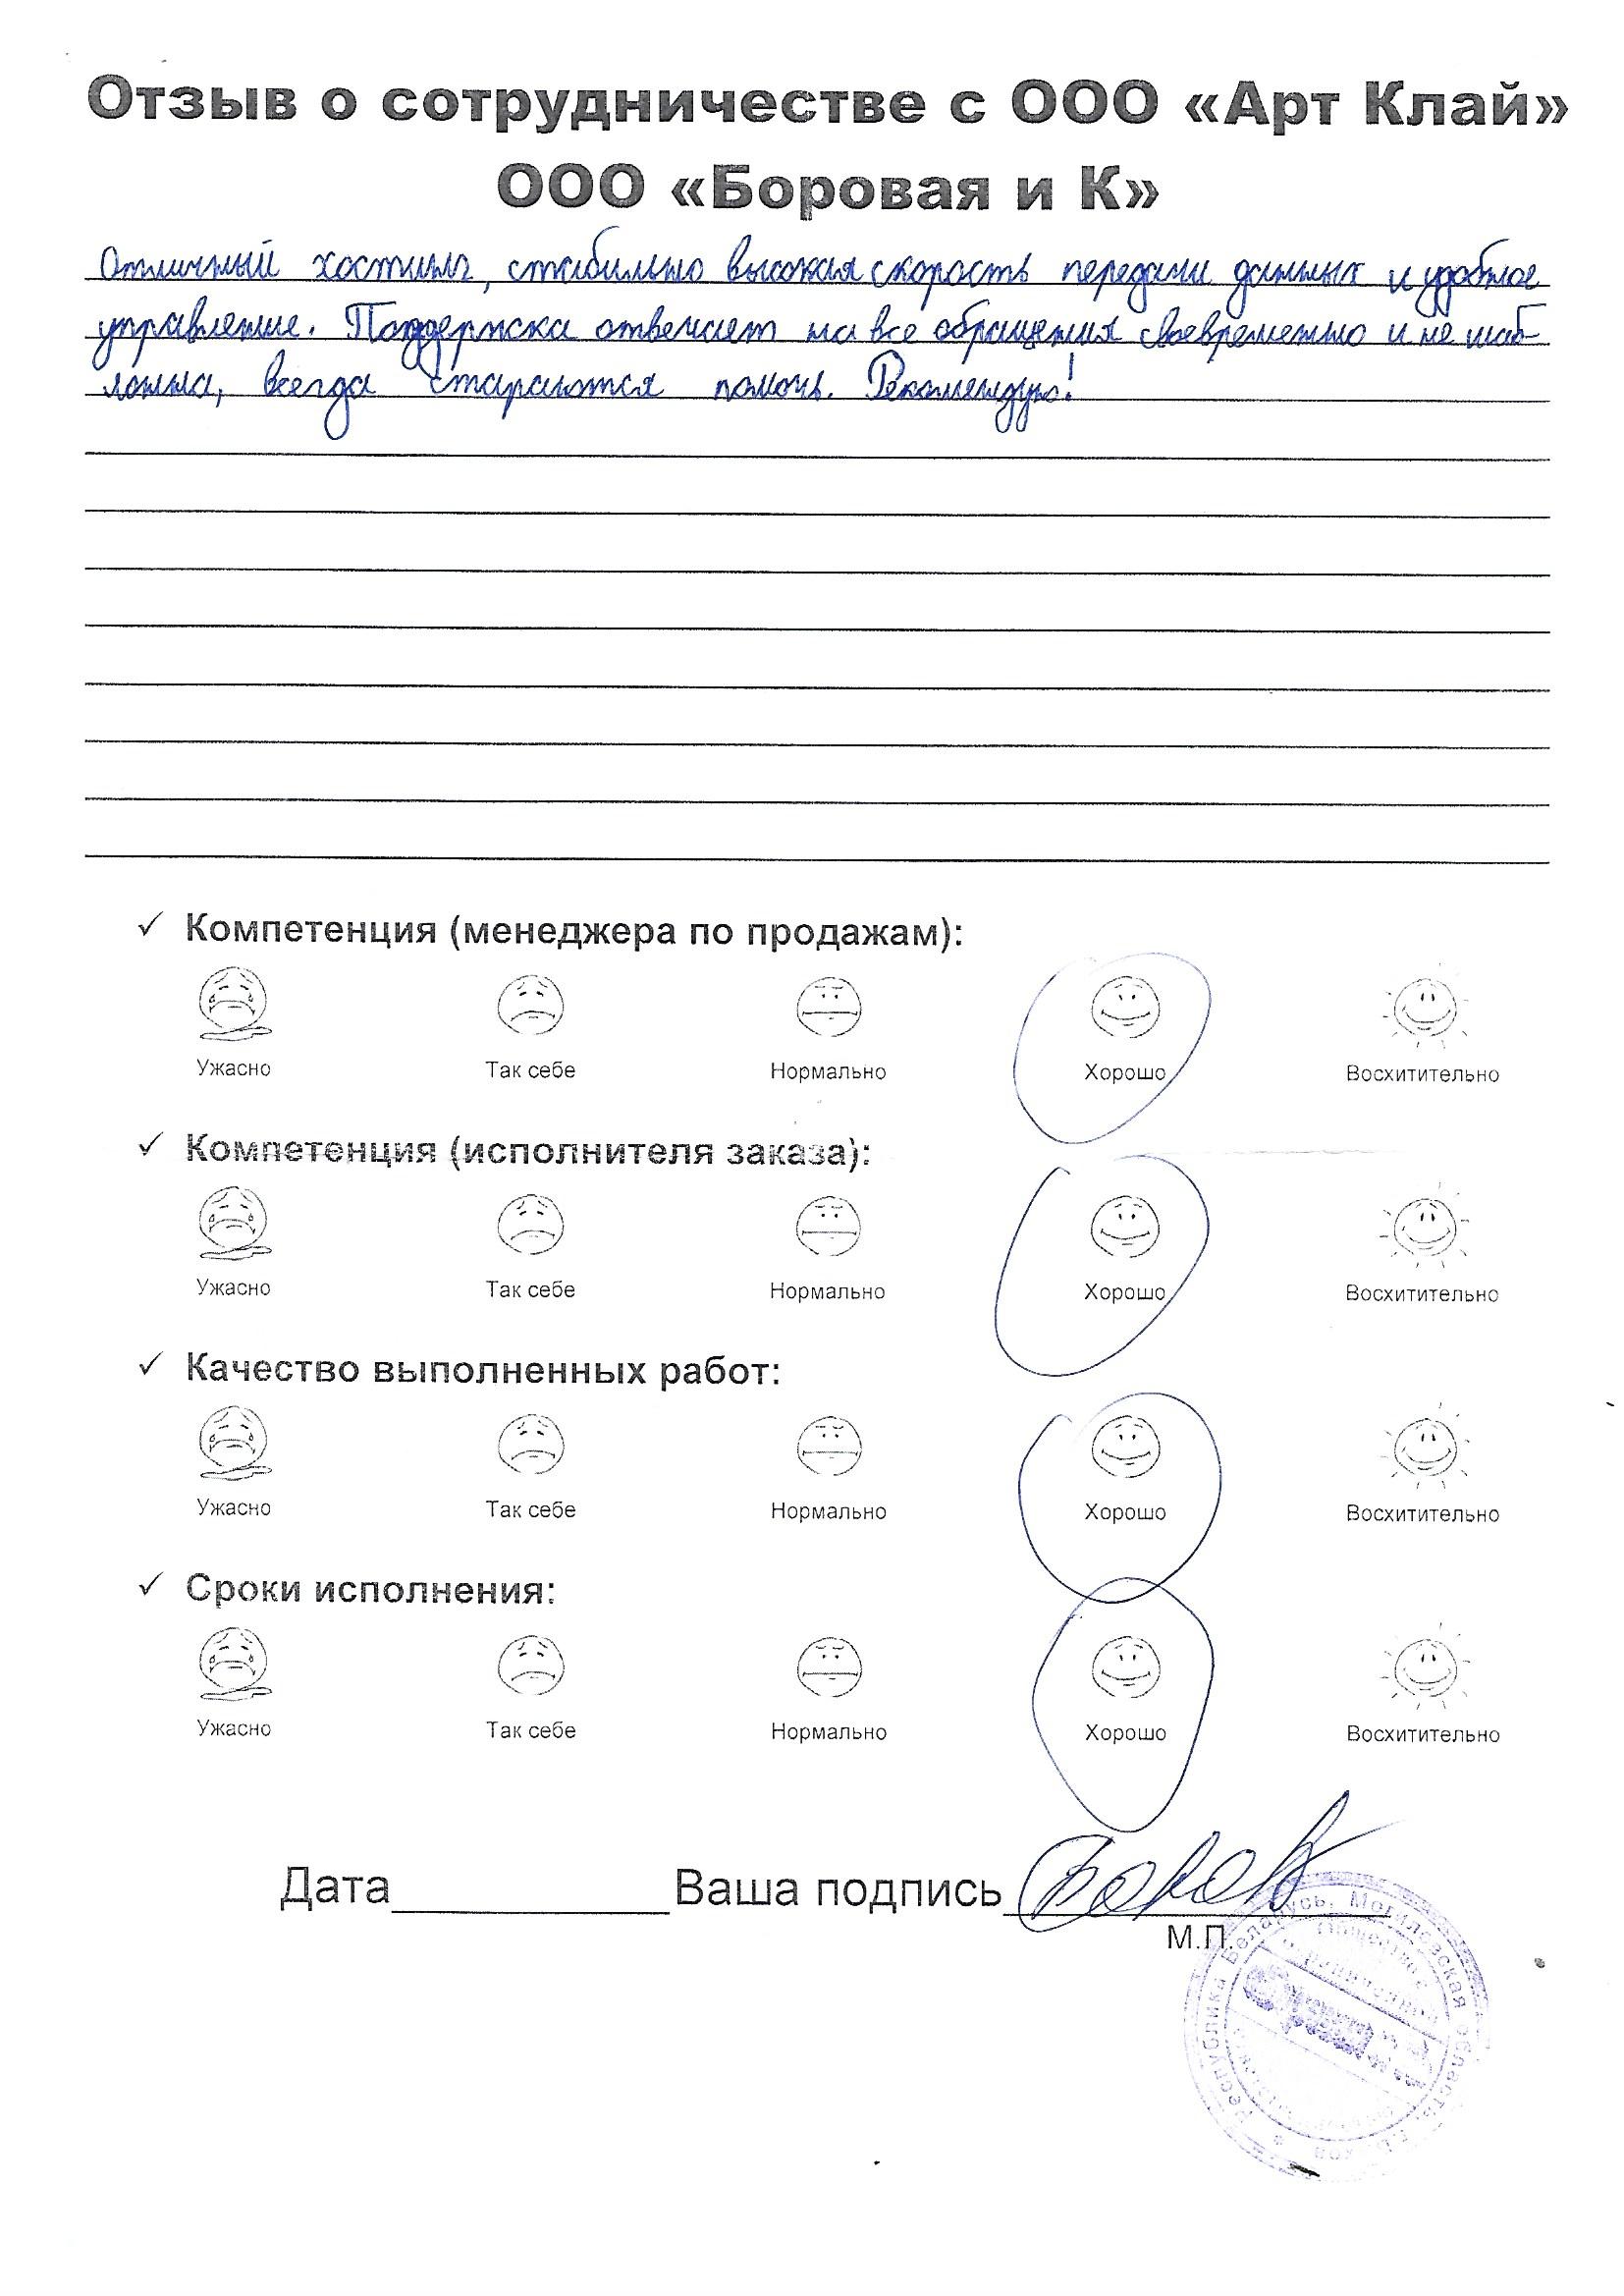 Отзыв о сотрудничестве с ООО «Арт Клай»
ООО «Боровая и К»
Отличный хостинг, стабильно высокая скорость передачи данных и удобное
управление. Поддержка отвечает на все обращения своевременно и не шаб-
лонна, всегда стараются помочь. Рекомендую!
✓ Компетенция (менеджера по продажам):
Ужасно Так себе Нормально Хорошо Восхитительно
✓ Компетенция (исполнителя заказа):
Ужасно Так себе Нормально Хорошо Восхитительно
✓ Качество выполненных работ:
Ужасно Так себе Нормально Хорошо Восхитительно
✓ Сроки исполнения:
Ужасно Так себе Нормально Хорошо Восхитительно
Дата Ваша подпись
М.П.
Республика Беларусь, Могилевская область,
Общество с